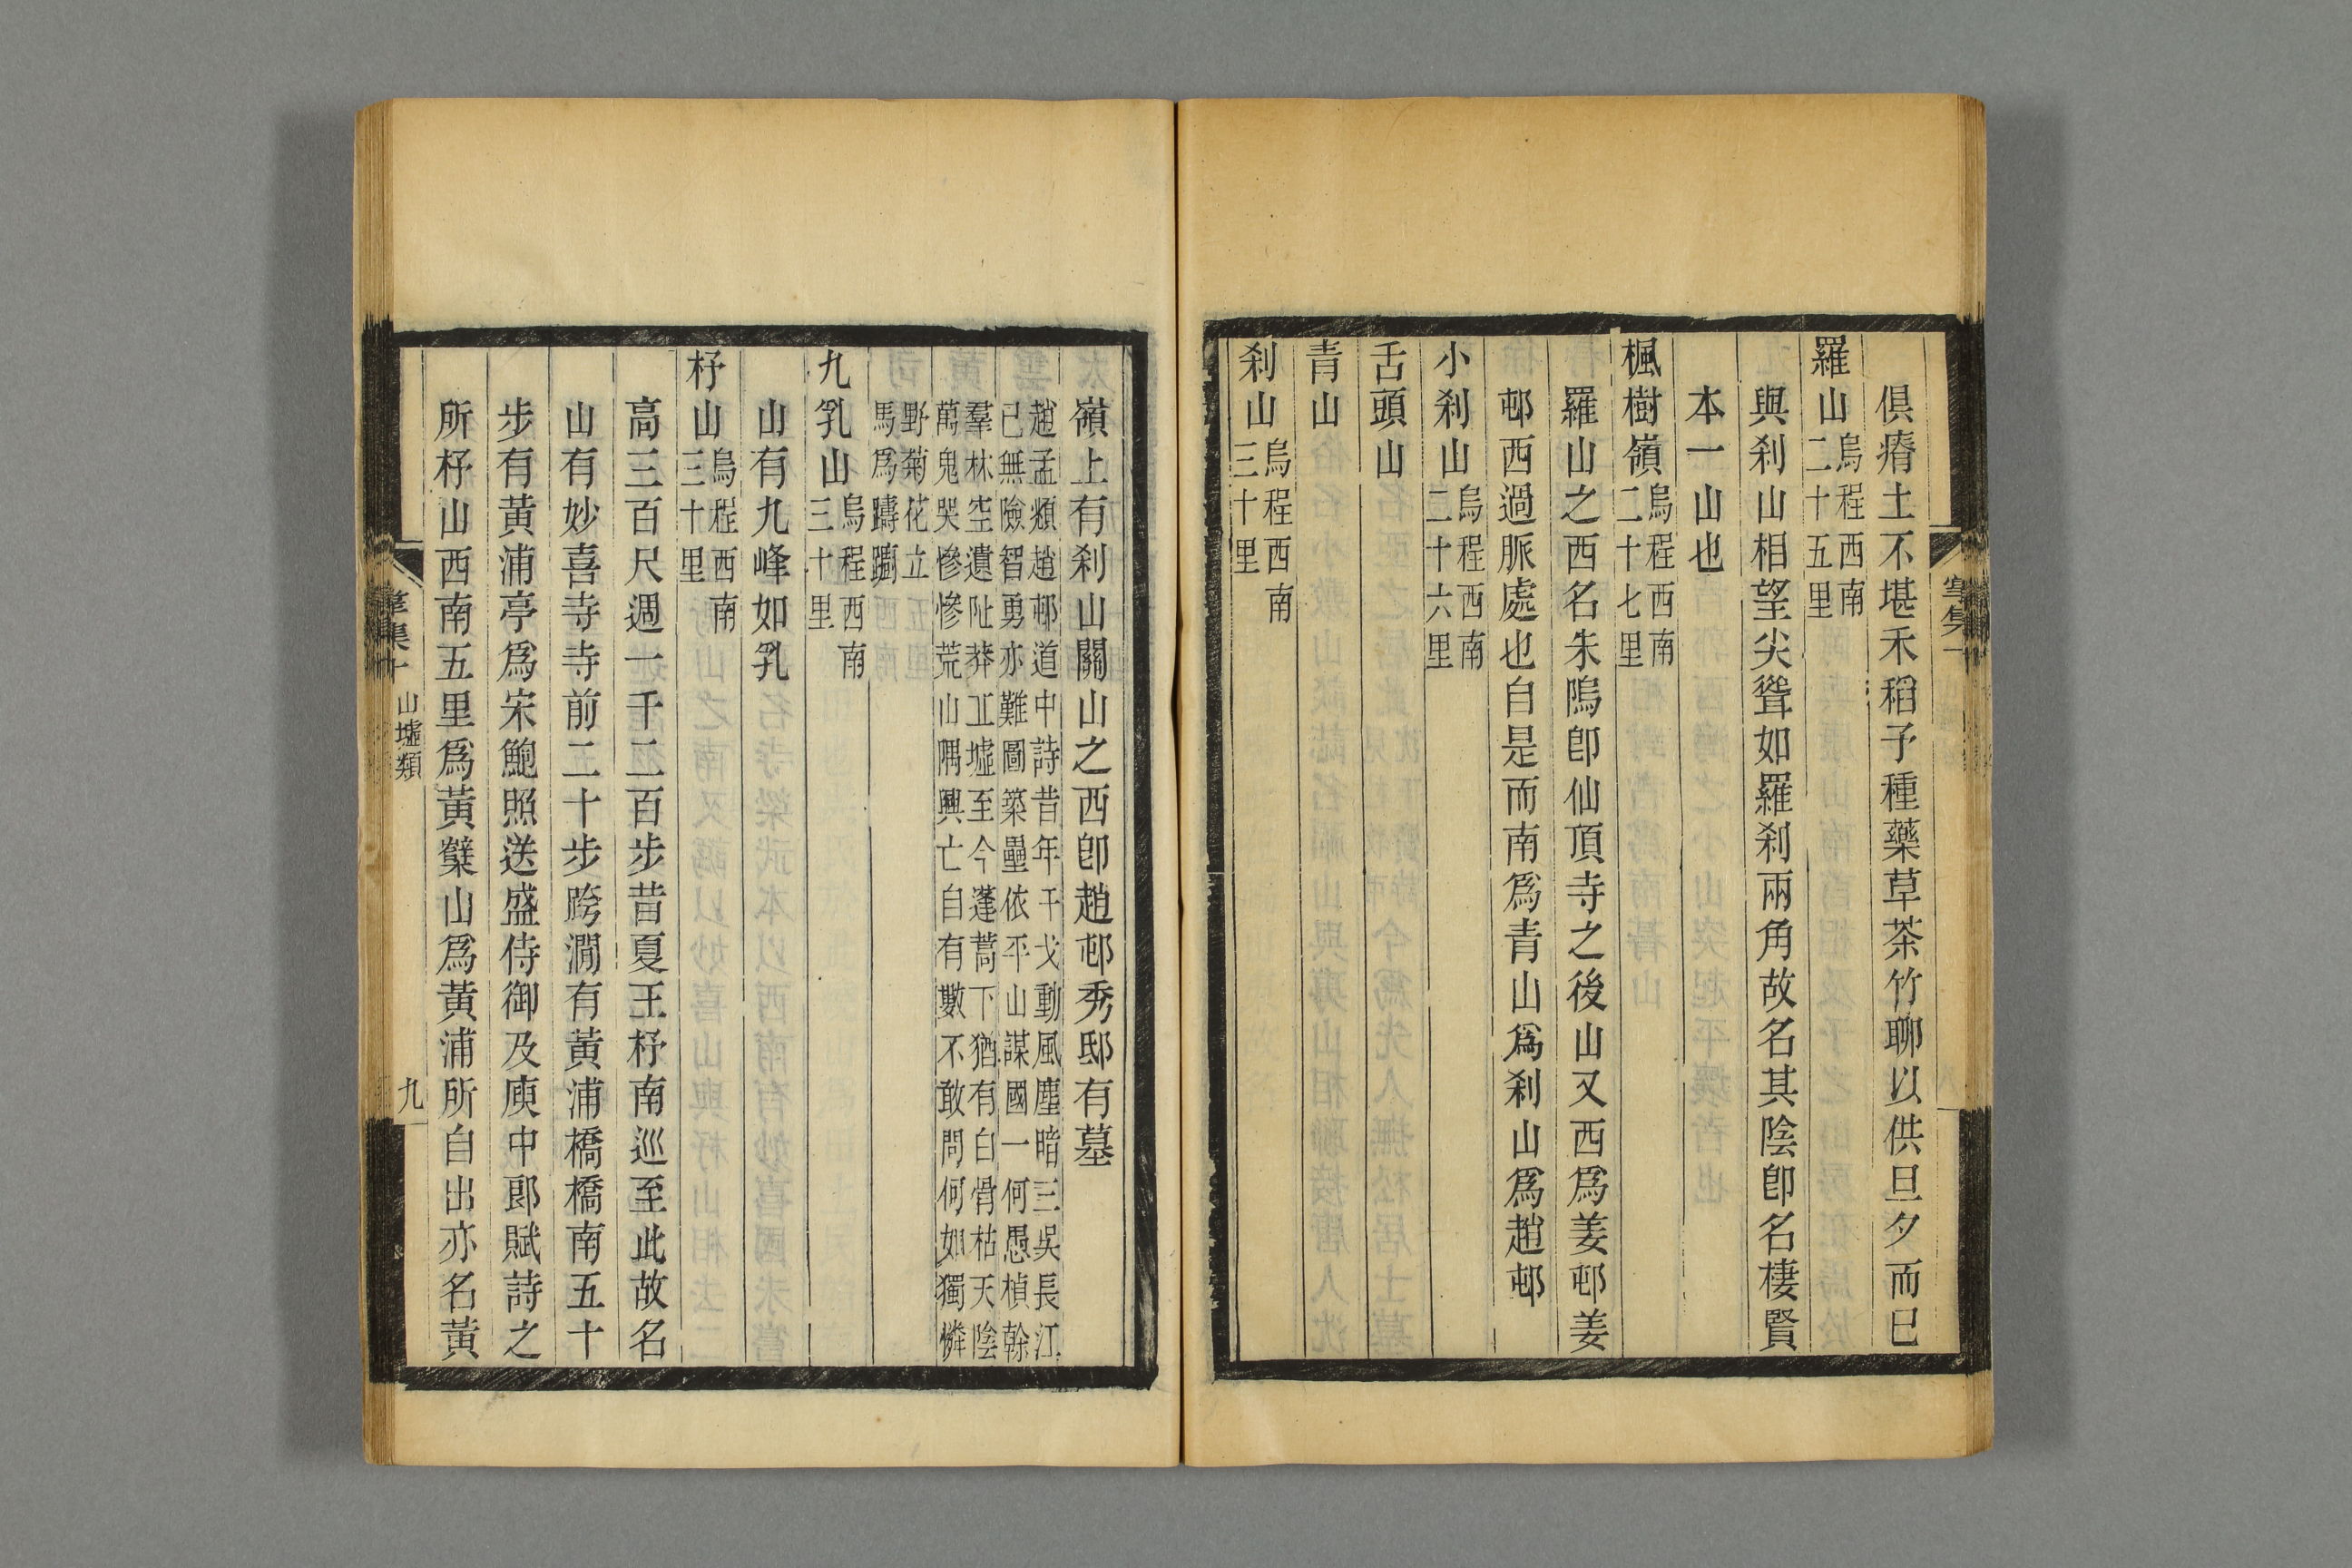 俱瘠土不堪禾稻予種藥草茶竹聊以供旦夕而已
羅山烏程西南二十五里
與刹山相望尖聳如羅刹兩角故名其陰卽名棲賢
本一山也
楓樹嶺烏程西南二十七里
羅山之西名朱隖卽仙頂寺之後山又西爲姜邨姜
邨西過脈處也自是而南爲青山爲刹山爲趙邨
小刹山烏程西南二十六里
舌頭山
青山
刹山烏程西南三十里
嶺上有刹山關山之西卽趙邨秀邸有墓
趙孟頫趙邨道中詩昔年干戈動風塵暗三吳長江
已無險智勇亦難圖築壘依平山謀國一何愚楨榦
羣林空遺阯莽丘墟至今蓬蒿下猶有白骨枯天陰
萬鬼哭慘慘荒山隅興亡自有數不敢問何如獨憐
野菊花立
馬爲躊躕
九乳山烏程西南三十里
山有九峰如乳
杼山烏程西南三十里
高三百尺週一千二百步昔夏王杼南巡至此故名
山有妙喜寺寺前二十步跨澗有黃浦橋橋南五十
步有黃浦亭爲宋鮑照送盛侍御及庾中郎賦詩之
所杼山西南五里爲黃櫱山爲黃浦所自出亦名黃
山墟類
九